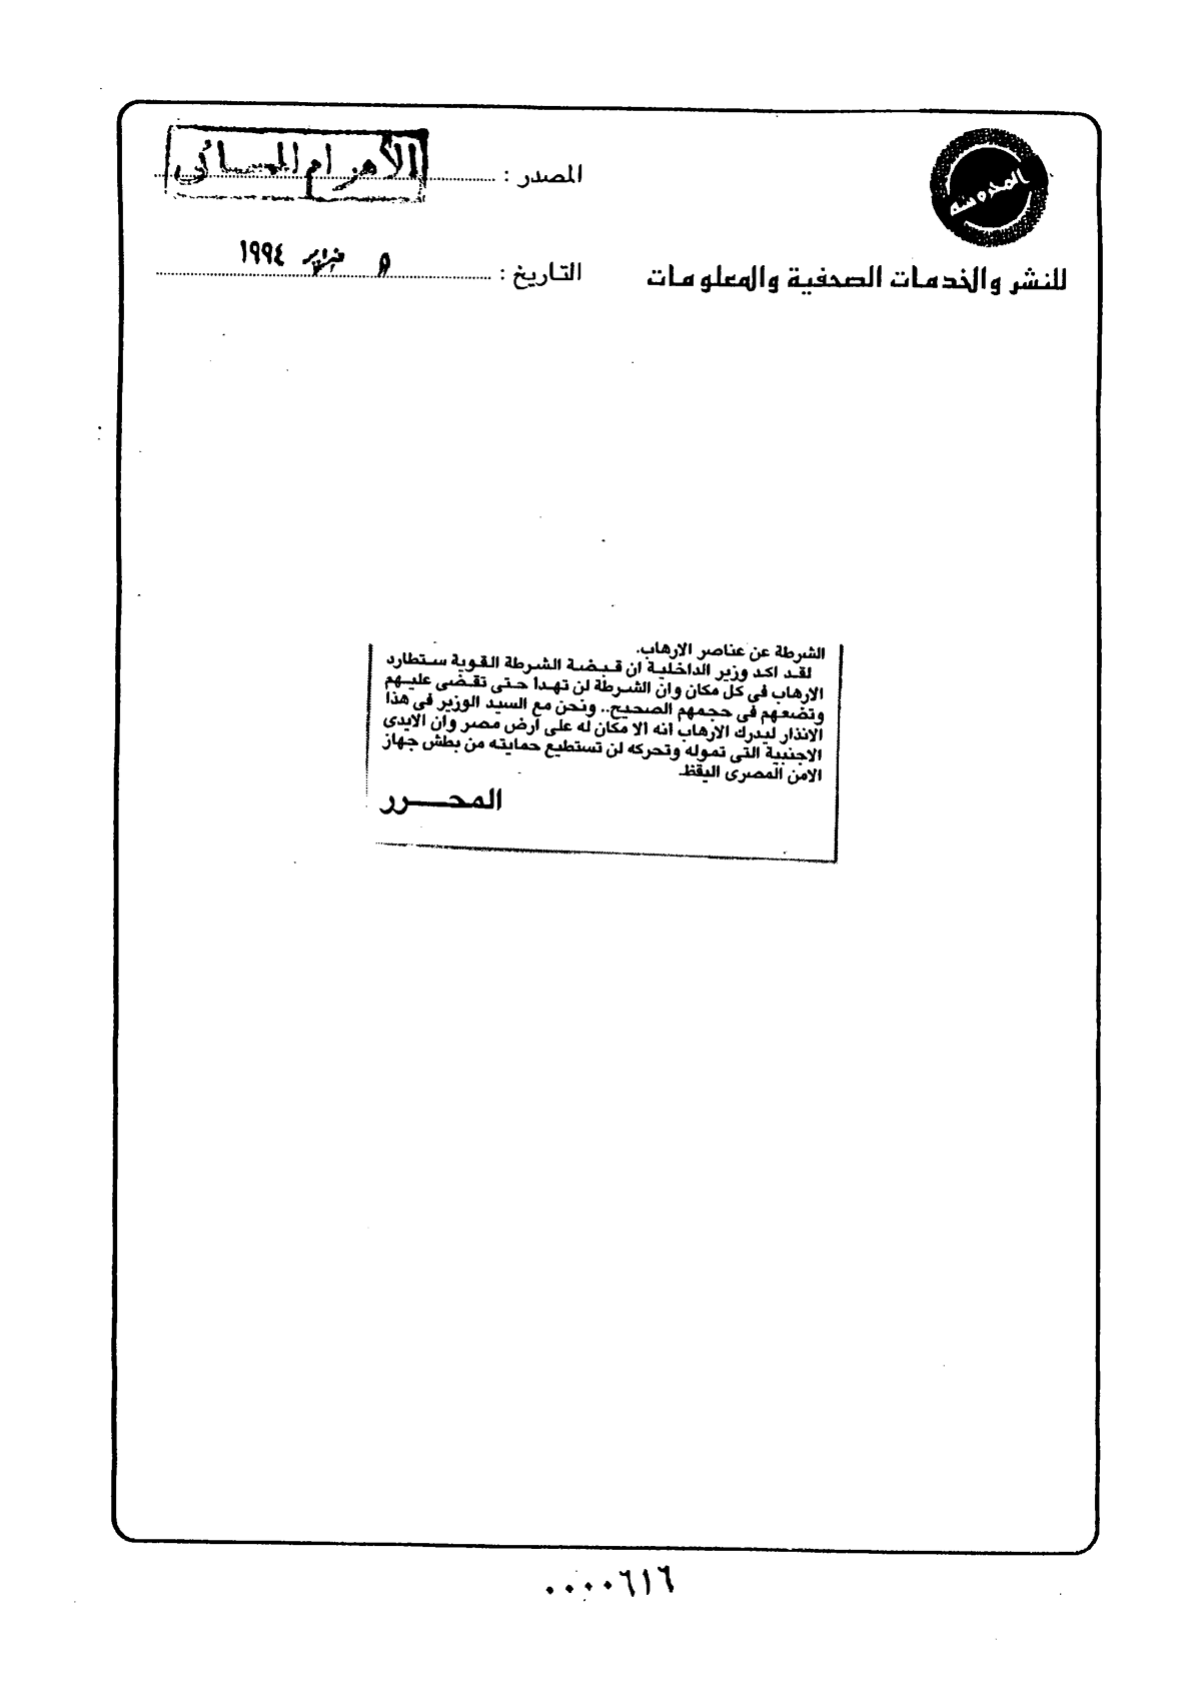 المحروسة
للنشر والخدمات الصحفية والمعلومات
المصدر : الأهرام المسائى
التاريخ : ٥ فبراير ١٩٩٤
الشرطة عن عناصر الارهاب.
لقد اكد وزير الداخلية ان قبضة الشرطة القوية ستطارد
الارهاب فى كل مكان وان الشرطة لن تهدا حتى تقضى عليهم
وتضعهم فى حجمهم الصحيح.. ونحن مع السيد الوزير فى هذا
الانذار ليدرك الارهاب انه الا مكان له على ارض مصر وان الايدى
الاجنبية التى تموله وتحركه لن تستطيع حمايته من بطش جهاز
الامن المصرى اليقظ.
المحـــرر
٠٠٠٠٦١٦